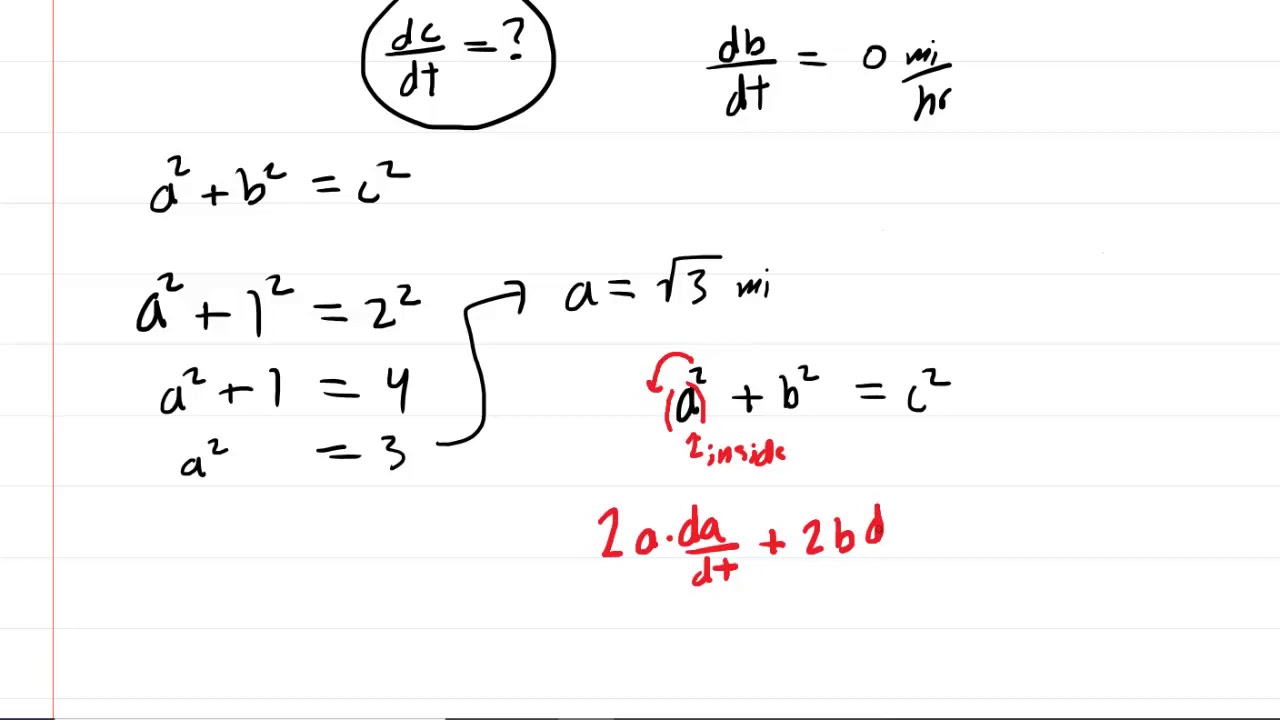 dc/dt = ?
db/dt = 0 mi/hr
a² + b² = c²
a² + 1² = 2²
a = √3 mi
a² + 1 = 4
(a)² + b² = c²
a² = 3
inside
2a · da/dt + 2b d